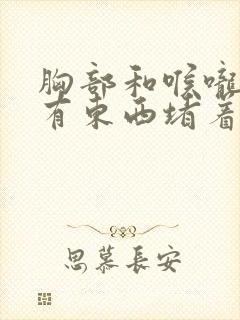 胸部和喉嚨
有東西堵着
思慕長安